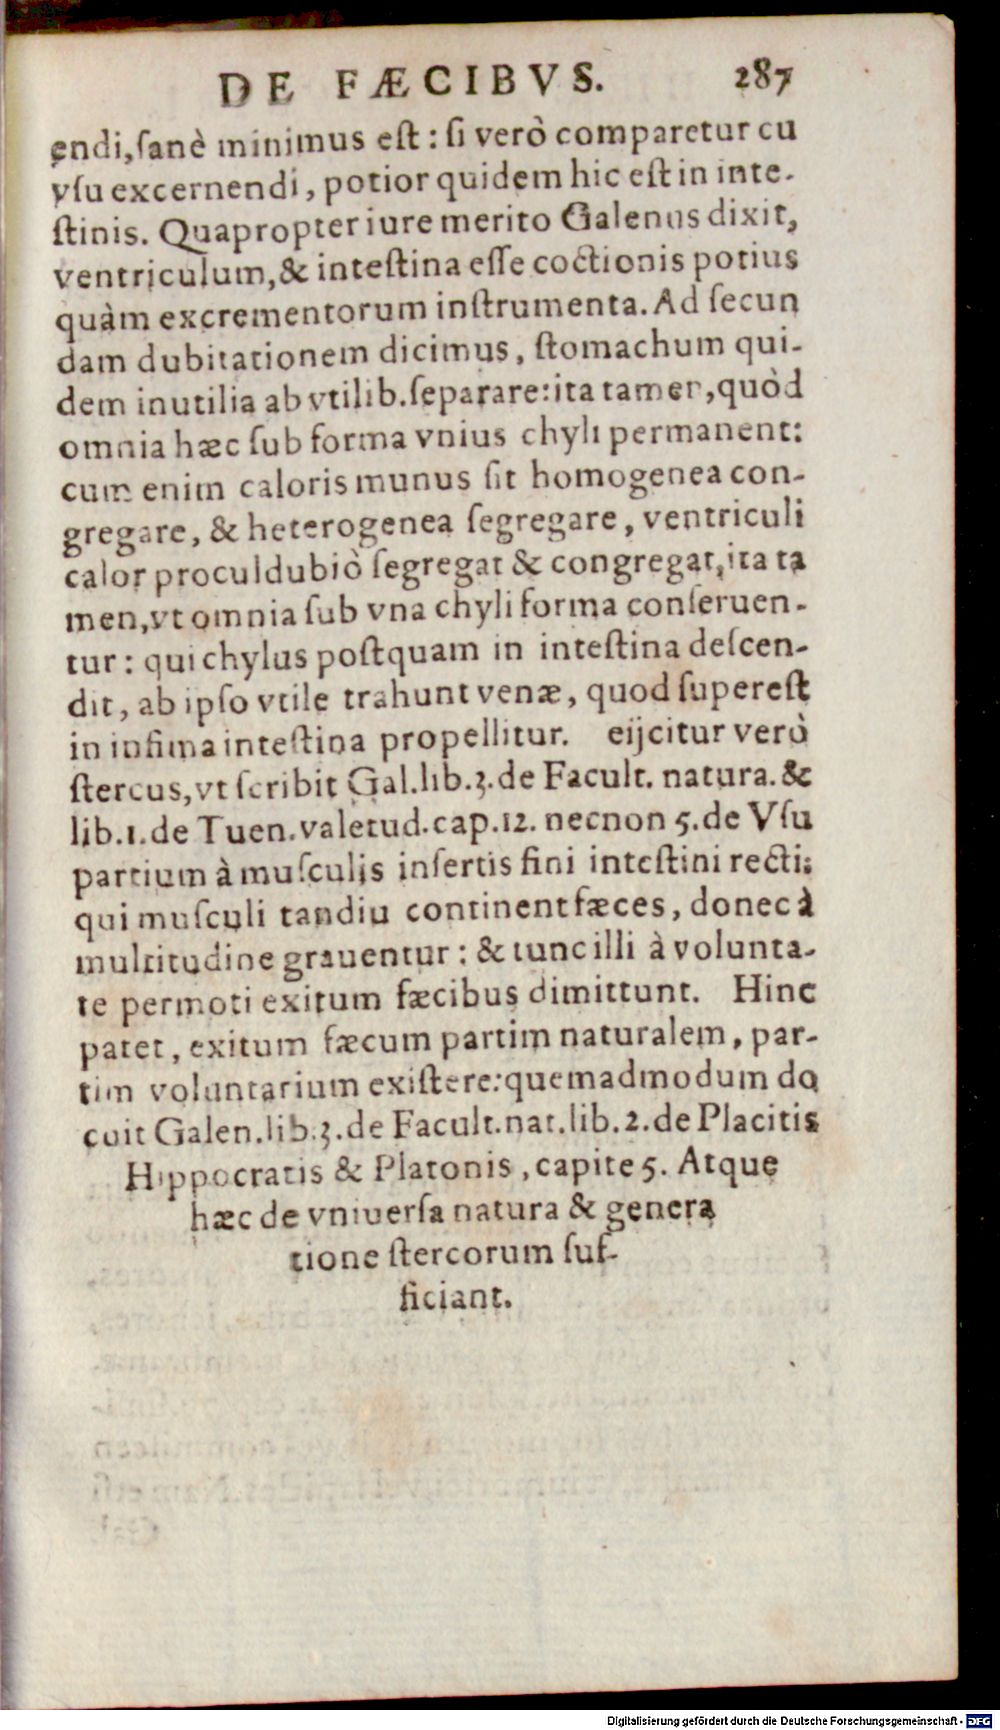 DE FÆCIBVS. 287
endi, ſanè minimus eſt: ſi verò comparetur cu
vſu excernendi, potior quidem hic eſt in inte-
ſtinis. Quapropter iure merito Galenus dixit,
ventriculum, & inteſtina eſſe coctionis potius
quàm excrementorum inſtrumenta. Ad ſecun
dam dubitationem dicimus, ſtomachum qui-
dem inutilia ab vtilib. ſeparare: ita tamen, quòd
omnia hæc ſub forma vnius chyli permanent:
cum enim caloris munus ſit homogenea con-
gregare, & heterogenea ſegregare, ventriculi
calor proculdubiò ſegregat & congregat, ita ta
men, vt omnia ſub vna chyli forma conſeruen-
tur: qui chylus poſtquam in inteſtina deſcen-
dit, ab ipſo vtile trahunt venæ, quod ſupereſt
in infima inteſtina propellitur. eijcitur verò
ſtercus, vt ſcribit Gal. lib. 3. de Facult. natura. &
lib. 1. de Tuen. valetud. cap. 12. necnon 5. de Vſu
partium à muſculis inſertis fini inteſtini recti:
qui muſculi tandiu continent fæces, donec à
multitudine grauentur: & tunc illi à volunta-
te permoti exitum fæcibus dimittunt. Hinc
patet, exitum fæcum partim naturalem, par-
tim voluntarium exiſtere: quemadmodum do
cuit Galen. lib. 3. de Facult. nat. lib. 2. de Placitis
Hippocratis & Platonis, capite 5. Atque
hæc de vniuerſa natura & genera
tione ſtercorum ſuf-
ficiant.
Digitalisierung gefördert durch die Deutsche Forschungsgemeinschaft - DFG